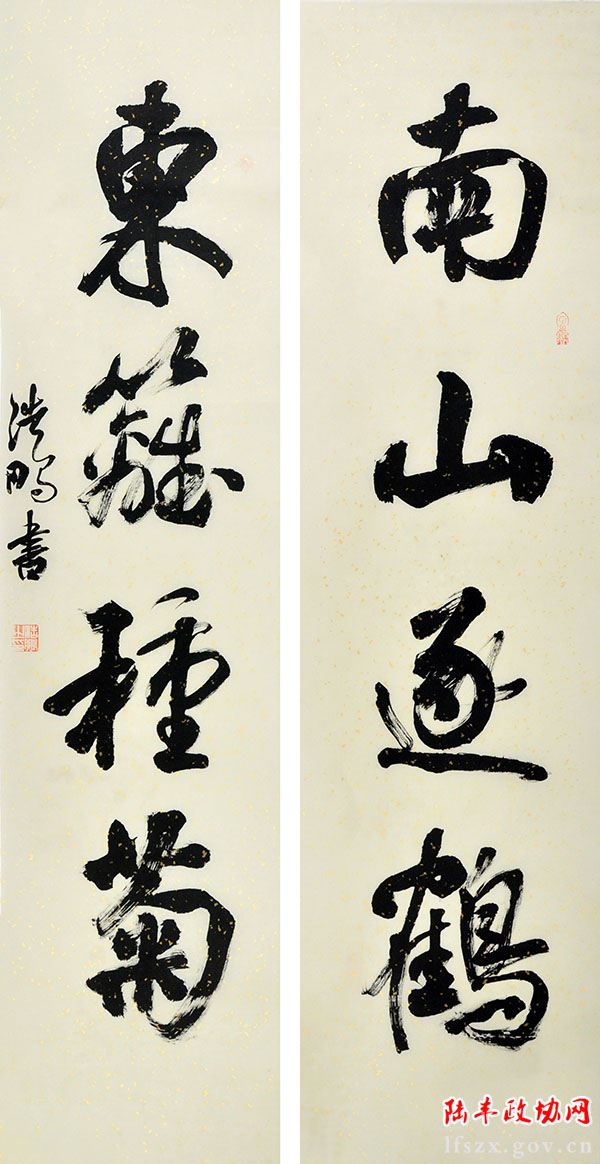 南山逐鶴
東籬種菊
浩鹏書
陆丰政协网
lfszx.gov.cn